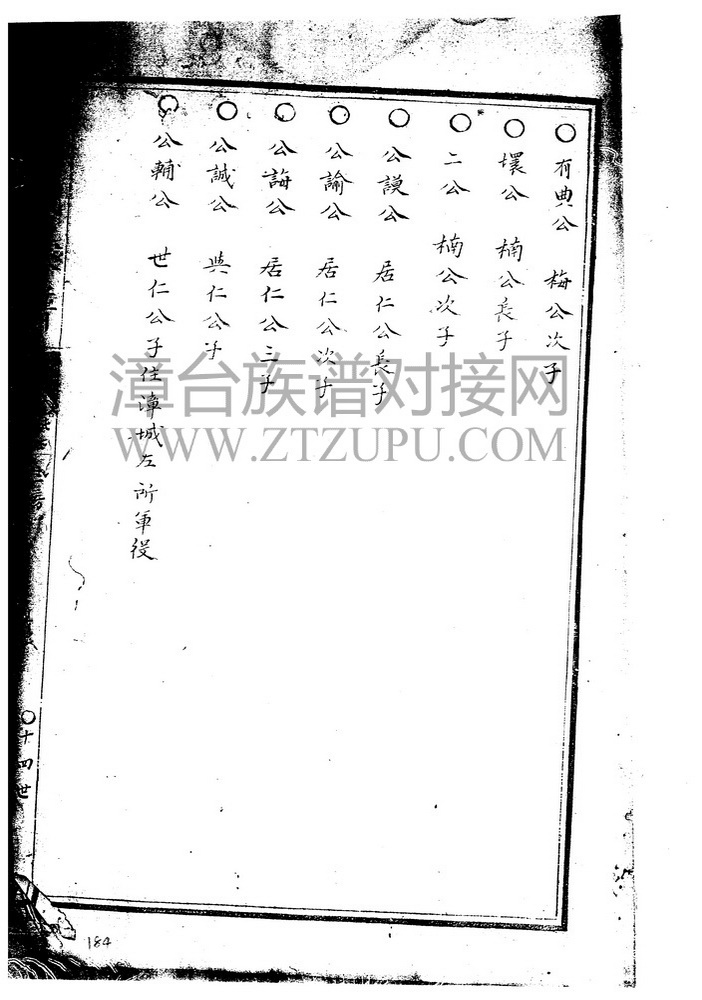 ○有典公　梅公次子
○壞公　楠公長子
○二公　楠公次子
○公謨公　居仁公長子
○公諭公　居仁公次子
○公誨公　居仁公三子
○公誠公　與仁公子
○公輔公　世仁公子住漳城左所軍役
○十四世
184
漳台族谱对接网
WWW.ZTZUPU.COM